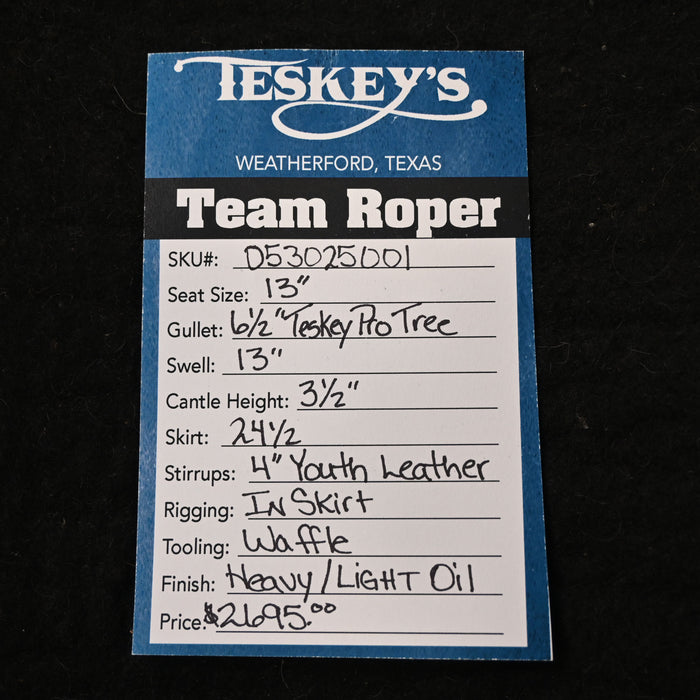 TESKEY'S
WEATHERFORD, TEXAS
Team Roper
SKU#: D53025001
Seat Size: 13"
Gullet: 6½" Teskey Pro Tree
Swell: 13"
Cantle Height: 3½"
Skirt: 24½
Stirrups: 4" Youth Leather
Rigging: In Skirt
Tooling: Waffle
Finish: Heavy/Light Oil
Price: $2695.00